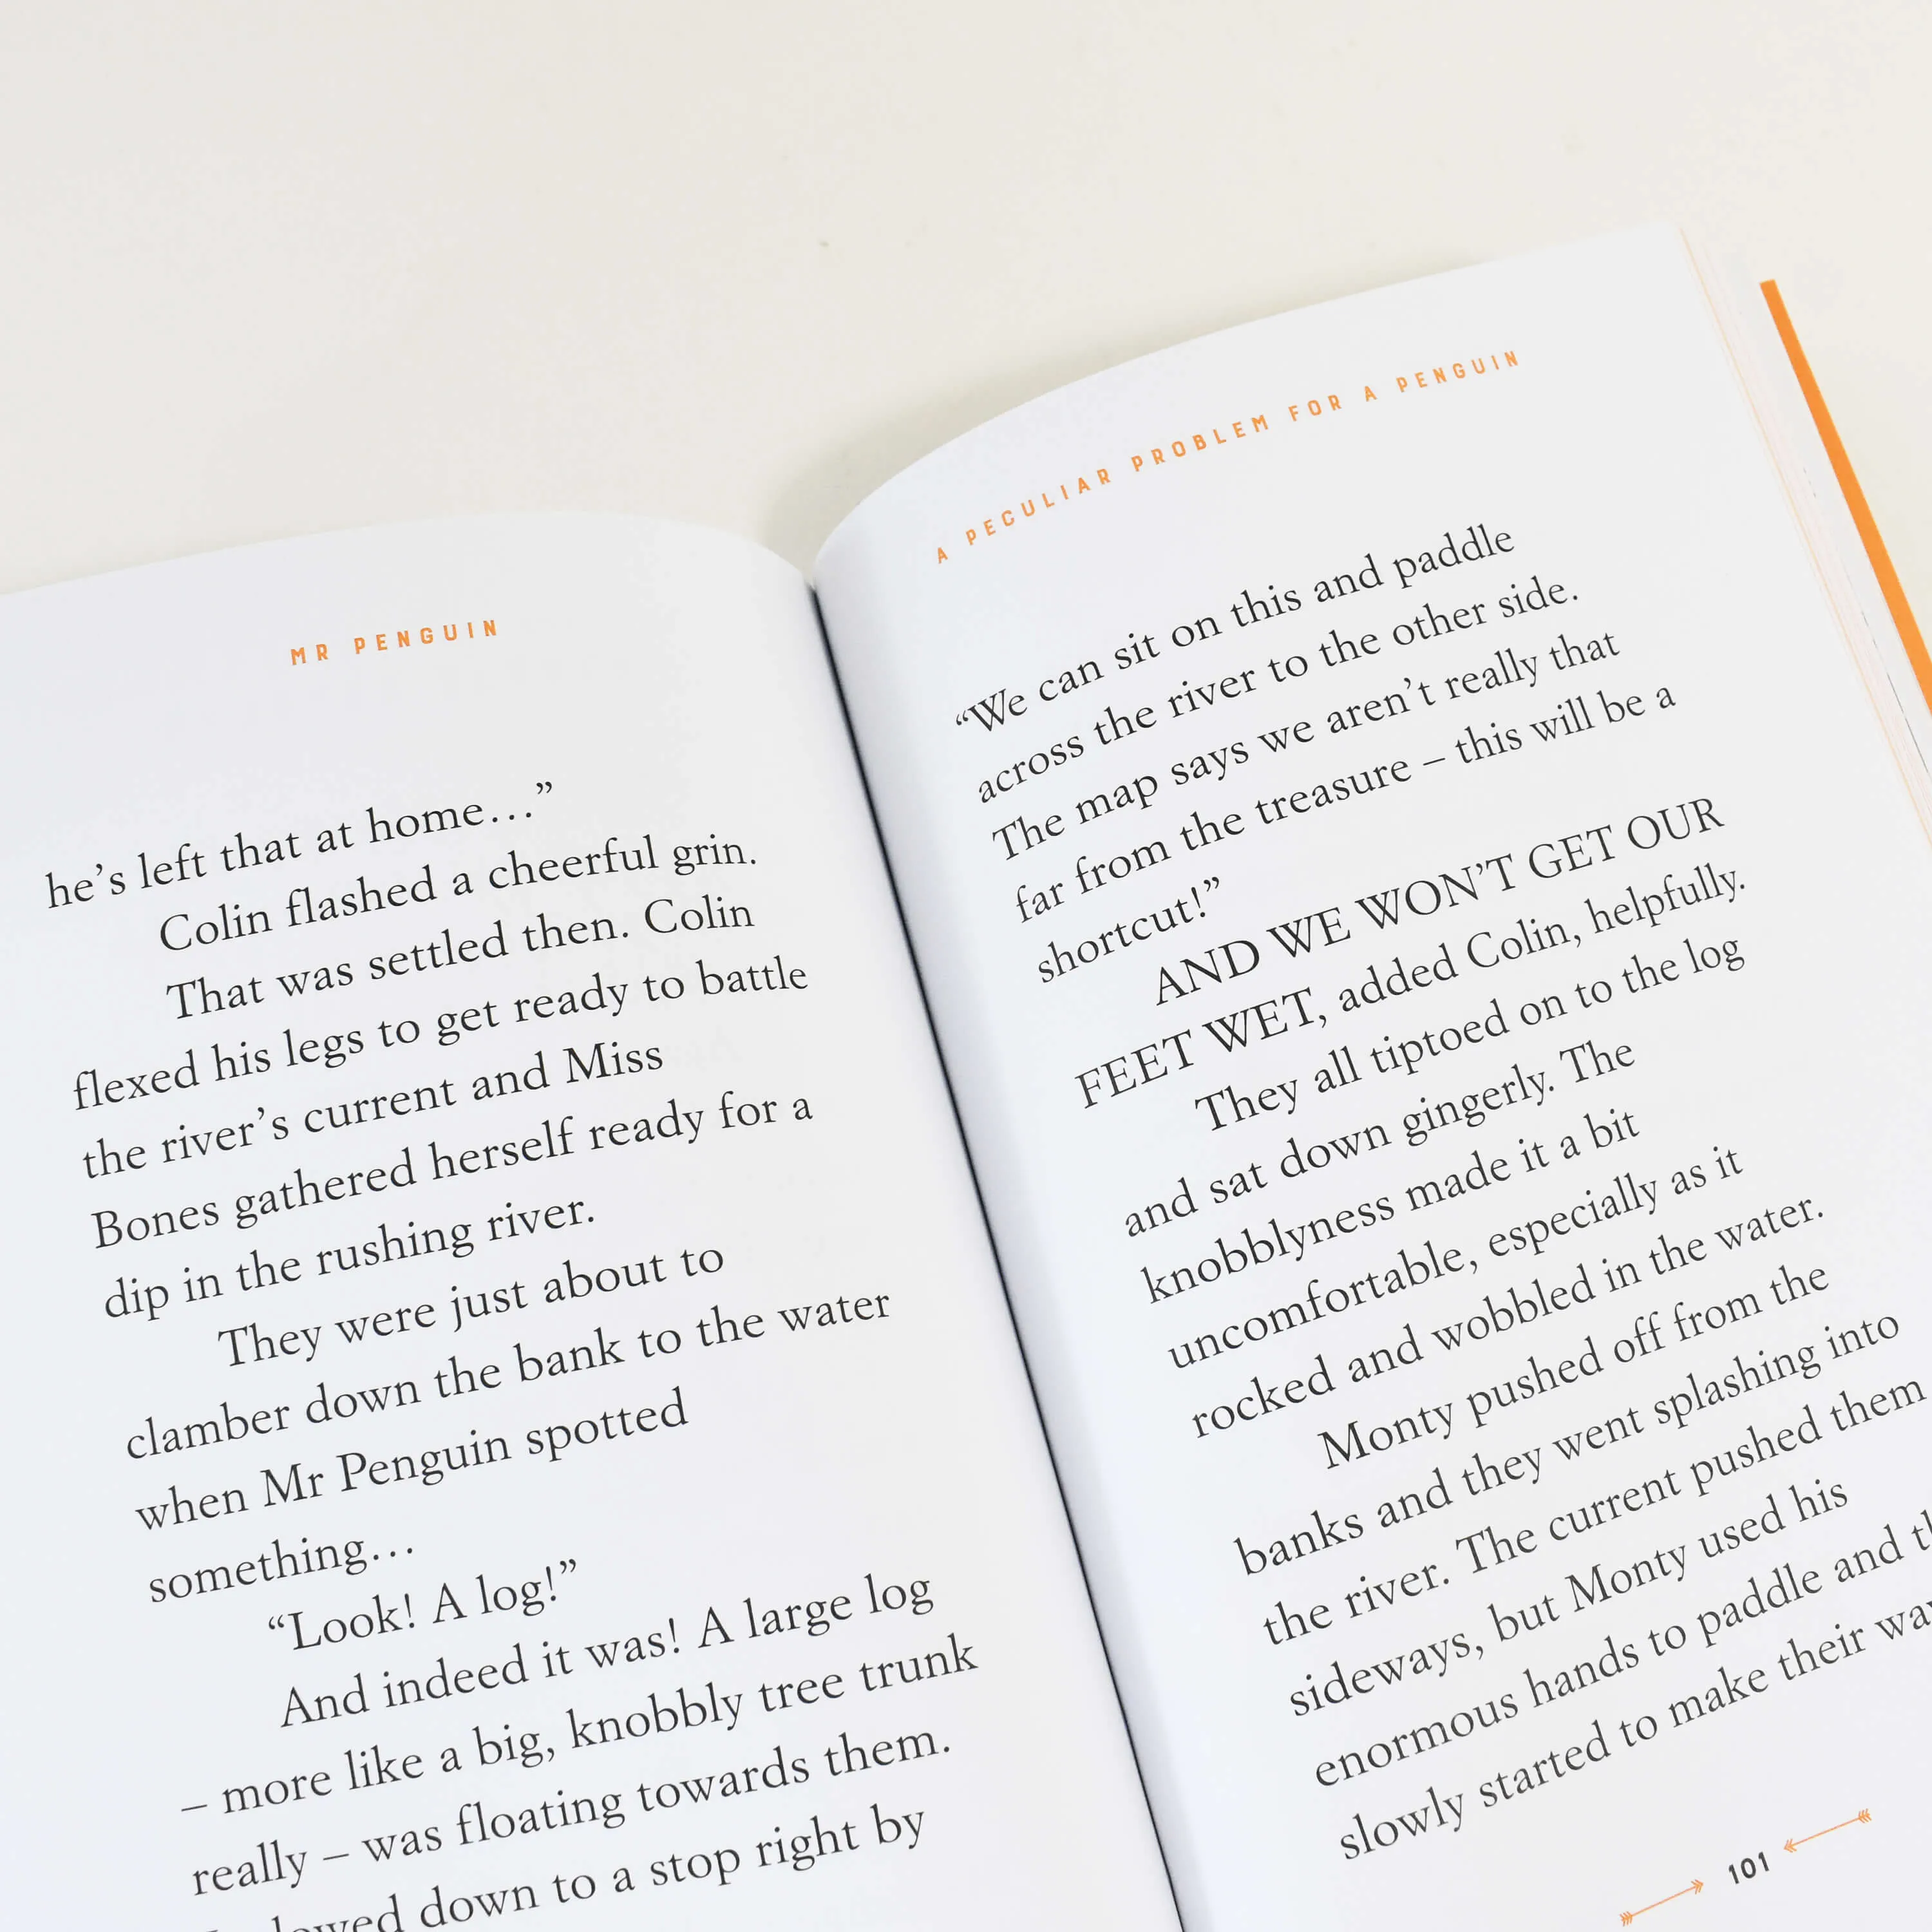 MR PENGUIN
he's left that at home…”
Colin flashed a cheerful grin.
That was settled then. Colin
flexed his legs to get ready to battle
the river’s current and Miss
Bones gathered herself ready for a
dip in the rushing river.
They were just about to
clamber down the bank to the water
when Mr Penguin spotted
something…
“Look! A log!”
And indeed it was! A large log
– more like a big, knobbly tree trunk
really – was floating towards them.
down to a stop right by
A PECULIAR PROBLEM FOR A PENGUIN
“We can sit on this and paddle
across the river to the other side.
The map says we aren’t really that
far from the treasure – this will be a
shortcut!”
AND WE WON’T GET OUR
FEET WET, added Colin, helpfully.
They all tiptoed on to the log
and sat down gingerly. The
knobblyness made it a bit
uncomfortable, especially as it
rocked and wobbled in the water.
Monty pushed off from the
banks and they went splashing into
the river. The current pushed them
sideways, but Monty used his
enormous hands to paddle and
slowly started to make their
101